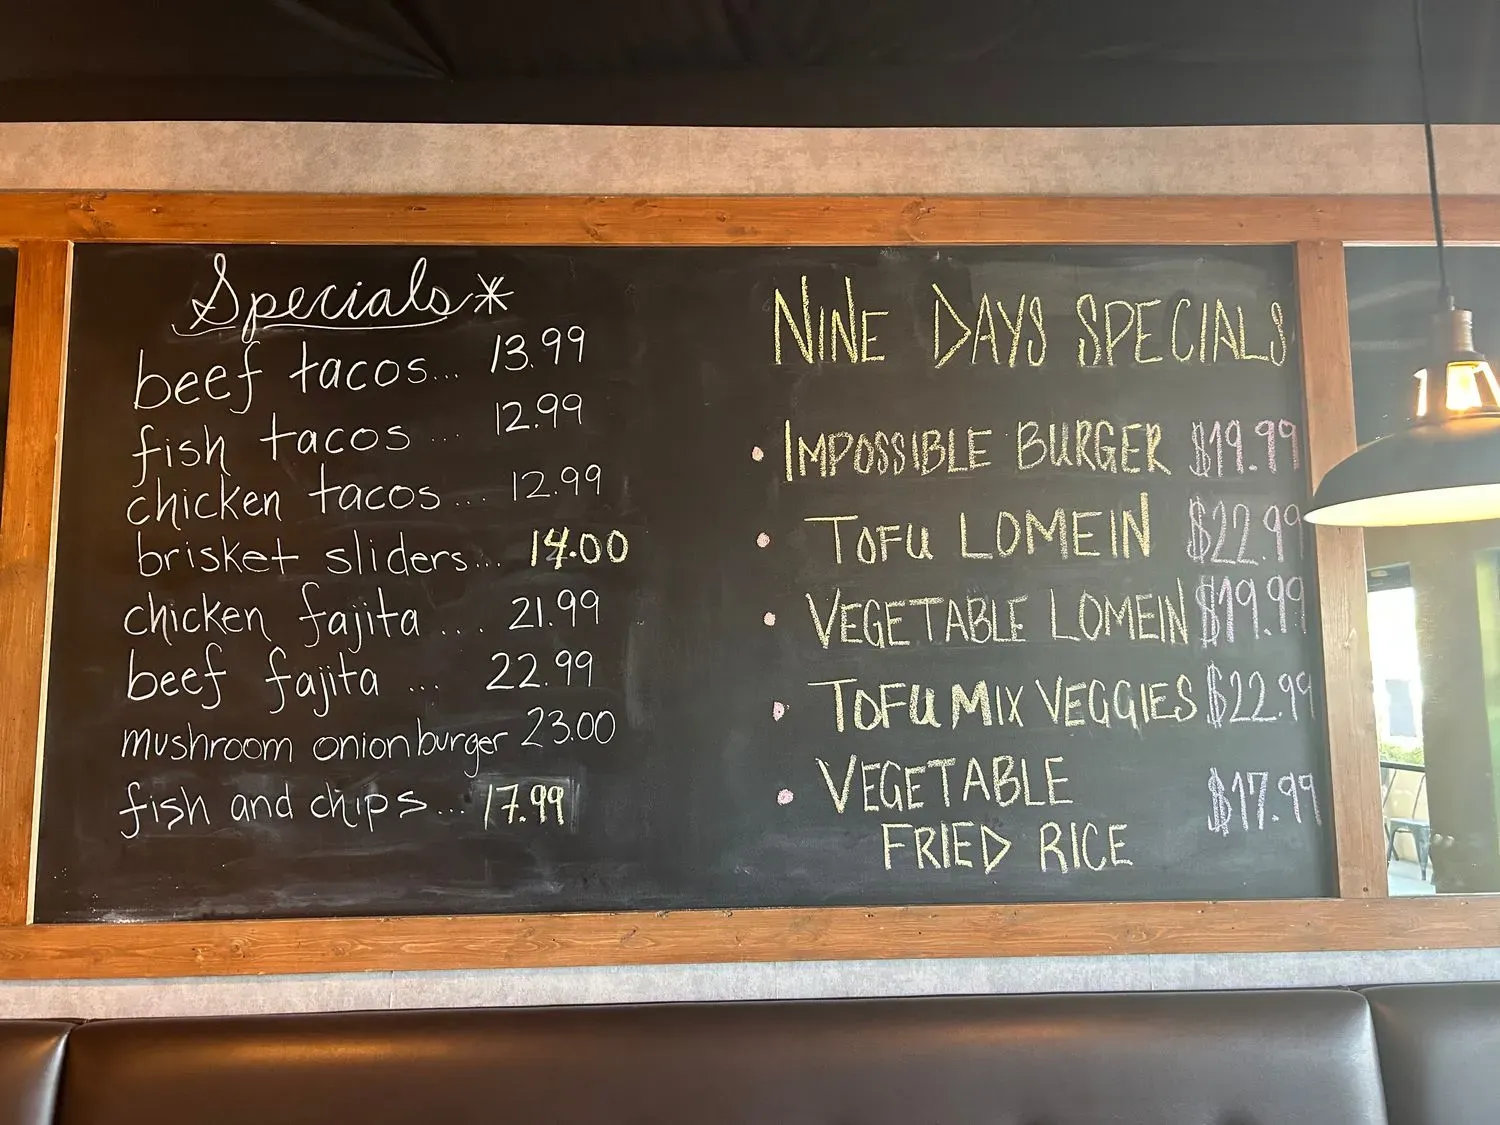 Specials*
beef tacos... 13.99
fish tacos ... 12.99
chicken tacos ... 12.99
brisket sliders... 14.00
chicken fajita .... 21.99
beef fajita ... 22.99
mushroom onion burger 23.00
fish and chips... 17.99
NINE DAYS SPECIALS
• IMPOSSIBLE BURGER $19.99
• TOFU LOMEIN $22.99
• VEGETABLE LOMEIN $19.99
• TOFU MIX VEGGIES $22.99
• VEGETABLE $17.99
FRIED RICE